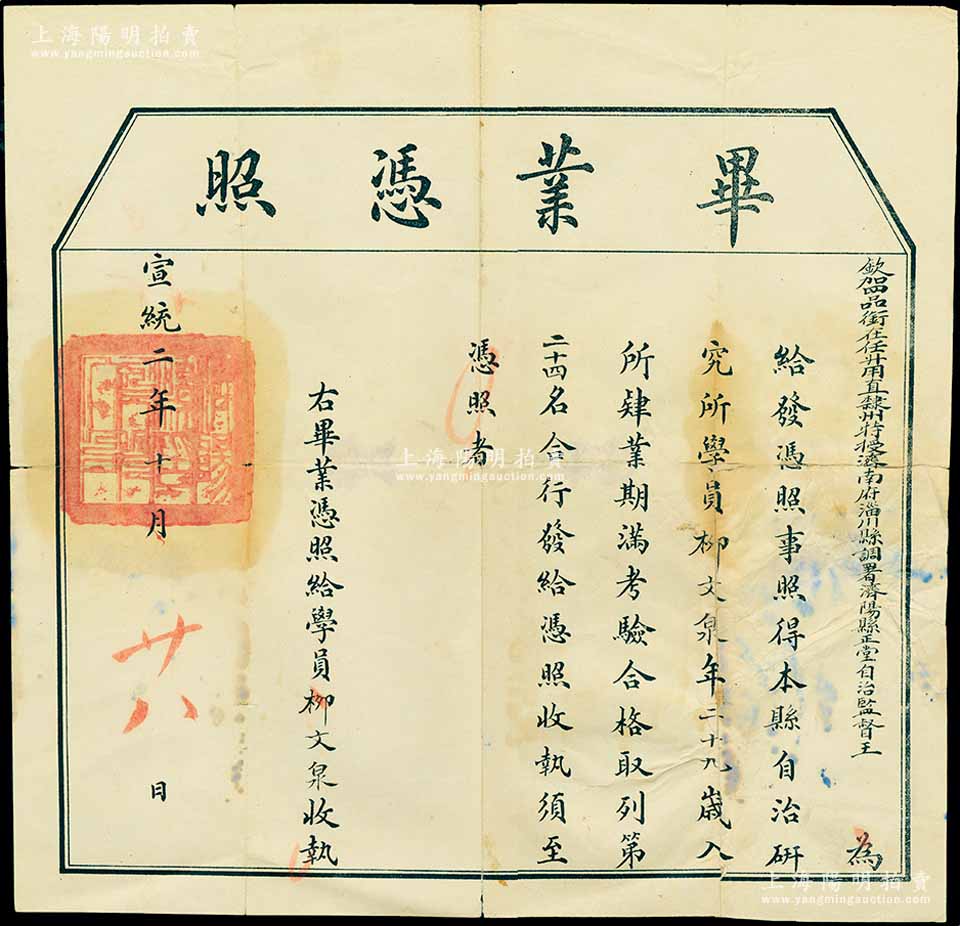 上海陽明拍賣
www.yangmingauction.com
畢業憑照
欽加四品銜在任候補直隸州特授濟南府淄川縣調署濟陽縣正堂自治監督王
為
給發憑照事照得本縣自治研
究所學員柳文泉年二十九歲入
所肄業期滿考驗合格取列第
二十四名合行發給憑照收執須至
憑照者
右畢業憑照給學員柳文泉收執
宣統二年十月廿八日
上海陽明拍賣
www.yangmingauction.com
上海陽明拍賣
www.yangmingauction.com